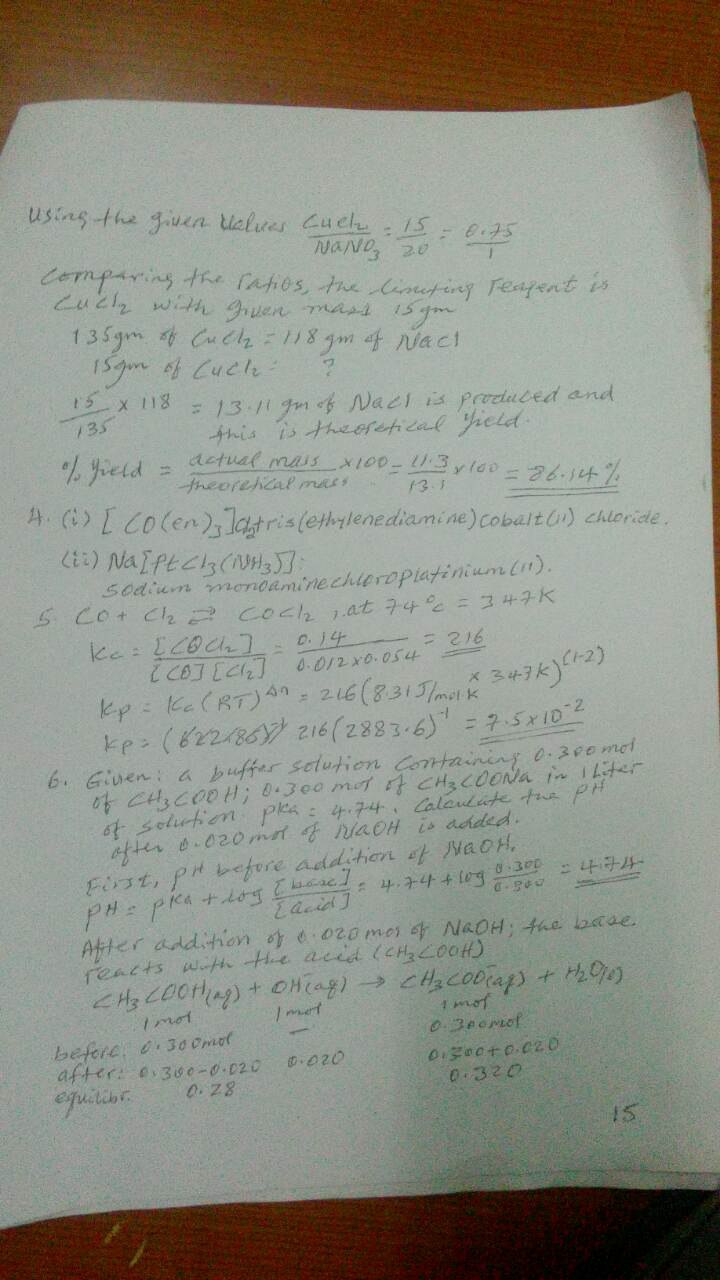 Using the given Values CuCl2/NaNO3 = 15/20 = 0.75/1
Comparing the ratios, the limiting reagent is
CuCl2 with given mass 15gm
135gm of CuCl2 = 118 gm of NaCl
15gm of CuCl2 = ?
15/135 x 118 = 13.11 gm of NaCl is produced and
this is theoretical yield.
% yield = actual mass/theoretical mass x100 = 11.3/13.1 x 100 = 86.14%
4. (i) [CO(en)3]Cl2 tris(ethylenediamine)cobalt(II) chloride.
(ii) Na[PtCl3(NH3)]:
Sodium monoaminechloroplatinium(II).
5. CO + Cl2 ⇌ COCl2, at 74°C = 347K
Kc = [COCl2]/[CO][Cl2] = 0.14/0.012x0.054 = 216
Kp = Kc(RT)^Δn = 216(8.31J/molK x 347K)^(1-2)
Kp = 216(2883.6)^-1 = 7.5x10^-2
6. Given: a buffer solution containing 0.300mol
of CH3COOH; 0.300 mol of CH3COONa in 1 Liter
of solution. pKa = 4.74. Calculate the pH
after 0.020mol of NaOH is added.
First, pH before addition of NaOH.
pH = pKa + log [base]/[acid] = 4.74 + log 0.300/0.300 = 4.74
After addition of 0.020 mol of NaOH; the base
reacts with the acid (CH3COOH)
CH3COOH(aq) + OH-(aq) → CH3COO-(aq) + H2O(l)
1mol 1mol 1mol
before: 0.300mol — 0.300mol
after: 0.300-0.020 0.020 0.300+0.020
equilibr. 0.28 0.320
15